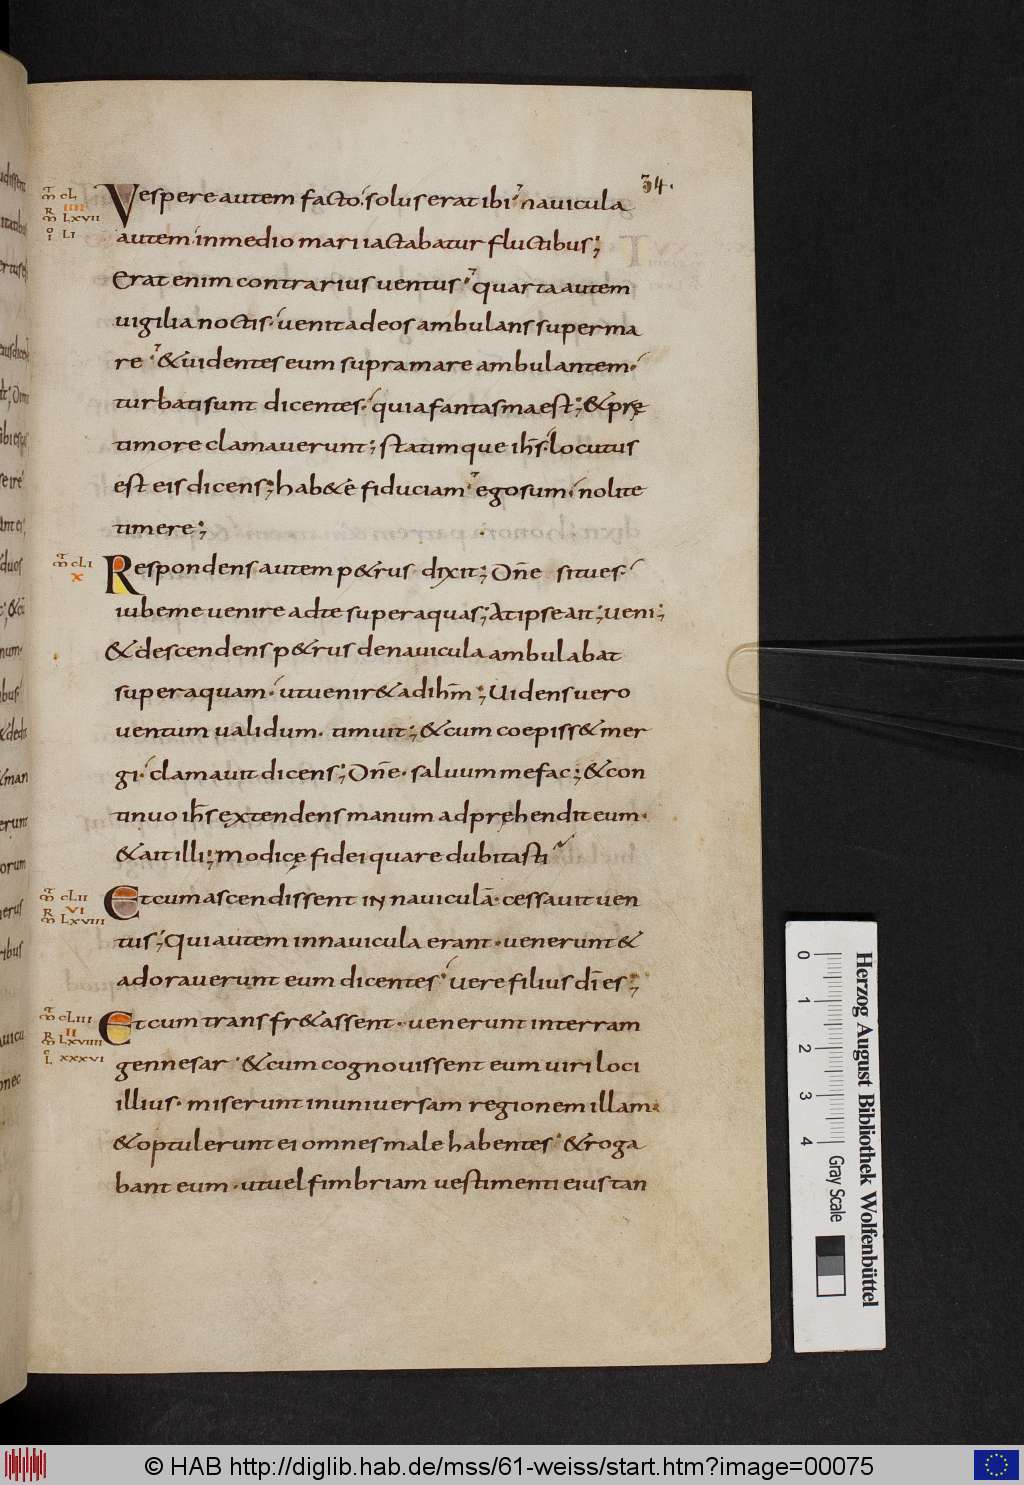 34.
Vespere autem facto. solus erat ibi. navicula
autem in medio mari iactabatur fluctibus;
Erat enim contrarius ventus. quarta autem
vigilia noctis. venit ad eos ambulans super ma
re. & videntes eum supra mare ambulantem.
turbati sunt dicentes. quia fantasma est; & prę
timore clamaverunt; statimque ih̅s. locutus
est eis dicens; hab&e fiduciam. ego sum. nolite
timere;
Respondens autem p&rus dixit; Dn̅e si tu es.
iube me venire ad te super aquas; At ipse ait; veni;
& descendens p&rus de navicula ambulabat
super aquam. ut venir& ad ih̅m; Uidens vero
ventum validum. timuit; & cum coepiss& mer
gi. clamavit dicens; Dn̅e. salvum me fac; & con
tinuo ih̅s ęxtendens manum adpręhendit eum.
& ait illi; modicę fidei quare dubitasti
Et cum ascendissent IN naviculā. cessavit ven
tus; Qui autem in navicula erant. venerunt &
adoraverunt eum dicentes. vere filius dī es;
Et cum transfr&assent. venerunt in terram
gennesar. & cum cognovissent eum viri loci
illius. miserunt in universam regionem illam.
& optulerunt ei omnes male habentes. & roga
bant eum. ut vel fimbriam vestimenti eius tan
CL
IIII
LXVII
LI
CLI
X
CLII
VI
LXVIII
CLIII
II
LXVIIII
XXXVI
0 1 2 3 4
Gray Scale
Herzog August Bibliothek Wolfenbüttel
© HAB http://diglib.hab.de/mss/61-weiss/start.htm?image=00075